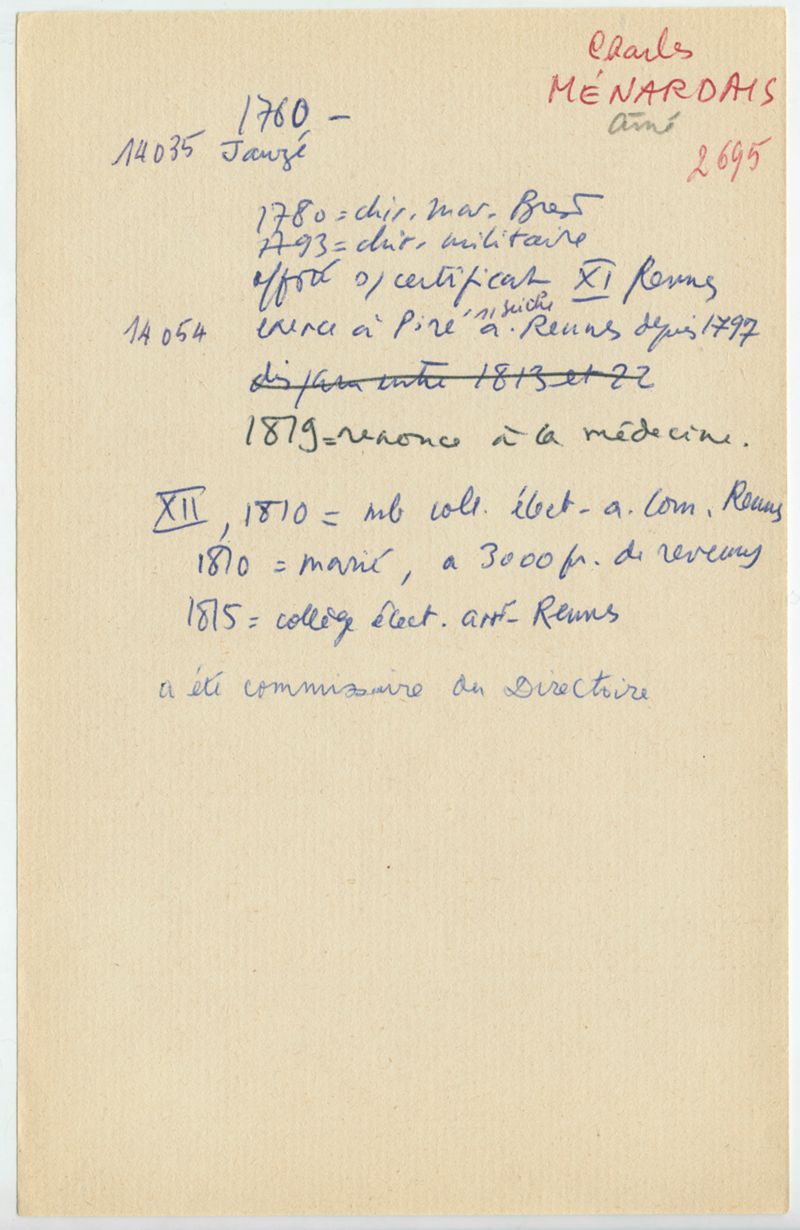 Charles
MÉNARDAIS
aîné
2695
1760 -
14035 Janzé
1780 = chir. mar. Brest
1793 = chir. militaire
certificat XI Rennes
14054 exerce à Piré, à Rennes depuis 1797
disparu entre 1813 et 22
1819 = renonce à la médecine.
XII, 1810 = mb coll. élect. a. Com. Rennes
1810 = marié, a 3000 fr. de revenus
1815 = collège élect. arrt Rennes
a été commissaire du Directoire